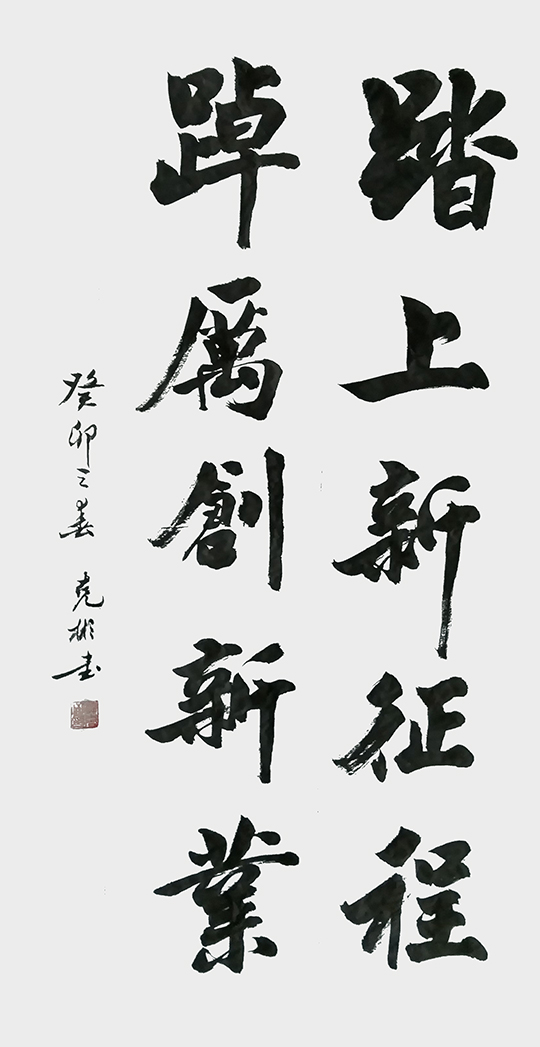 踏上新征程
踔厲創新業
癸卯之春 克彬书